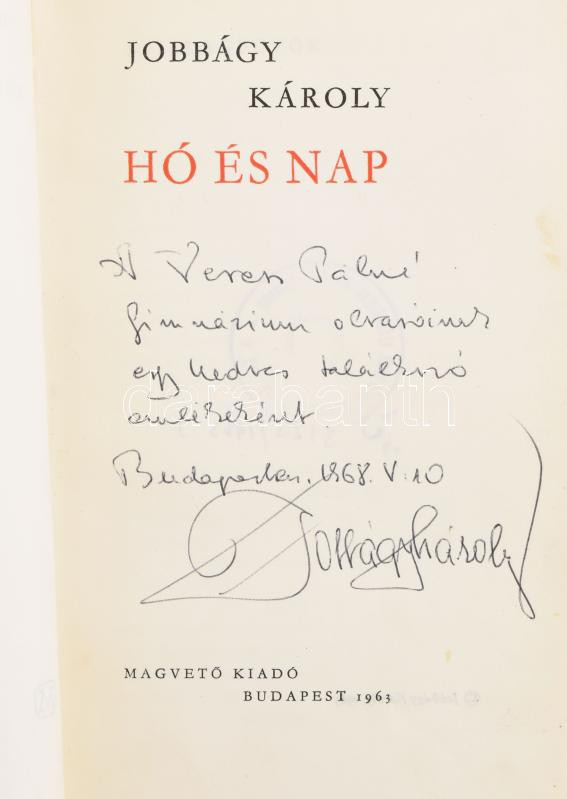 JOBBÁGY
KÁROLY
HÓ ÉS NAP
A Veres Pálné
Gimnázium olvasóinak
egy kedves találkozó
emlékeként.
Budapesten, 1968. V. 10
Jobbágy Károly
darabanth
MAGVETŐ KIADÓ
BUDAPEST 1963